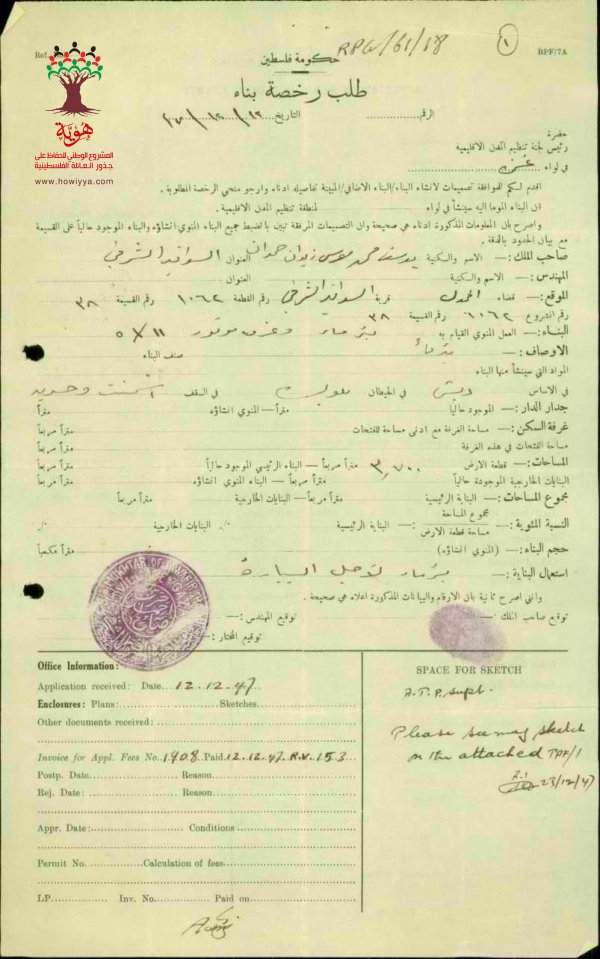 Ref.
RPG/61/18
١
RPF/7A
حكومة فلسطين
طلب رخصة بناء
الرقم
التاريخ ١٢/١٢/٤٧
هُوِيَّة
المشروع الوطني للحفاظ على
جذور العائلة الفلسطينية
www.howiyya.com
حضرة
رئيس لجنة تنظيم المدن الاقليمية
في لواء غزه
اقدم لكم للموافقة تصميمات لانشاء البناء/البناء الاضافي/المبينة تفاصيله ادناه وارجو منحي الرخصة المطلوبة.
ان البناء الموما اليه سينشأ في لواء لمنطقة تنظيم المدن الاقليمية.
واصرح بان المعلومات المذكورة ادناه هي صحيحة وان التصميمات المرفقة تبين بالضبط جميع البناء المنوي انشاؤه والبناء الموجود حالياً على القسيمة
مع بيان الحدود بالدقة.
صاحب الملك:— الاسم والسكنية يوسف محمد موسى زيدان حمدان العنوان السوافير الشرقي
المهندس:— الاسم والسكنية العنوان
الموقع:— قضاء المجدل قرية السوافير الشرقي رقم القطعة ١٠٦٢ رقم القسيمة ٣٨
رقم المشروع ١٠٦٢ رقم القسيمة ٣٨
البناء:— العمل المنوي القيام به بئر ماء وغرف موتور ١١ X ٥
الاوصاف:— بئر ماء صنف البناء
المواد التي سينشأ منها البناء
في الاساس دبش في الحيطان بلوك في السقف اسمنت وحديد
جدار الدار:— الموجود حالياً متراً—المنوي انشاؤه متراً
غرفة السكن:— مساحة الغرفة مع ادنى مساحة للفتحات متراً مربعاً
مساحة الفتحات في هذه الغرفة متراً مربعاً
المساحات:— قطعة الارض ٣,٧٠٠ متراً مربعاً— البناء الرئيسي الموجود حالياً متراً مربعاً
البنايات الخارجية الموجودة حالياً متراً مربعاً— البناء المنوي انشاؤه متراً مربعاً
مجموع المساحات:— البناية الرئيسية متراً مربعاً—البنايات الخارجية متراً مربعاً
مجموع المساحة
النسبة المئوية:— مساحة قطعة الارض — البناية الرئيسية ٪. البنايات الخارجية ٪.
حجم البناء:— (المنوي انشاؤه) متراً مكعباً
استعمال البناية:— بئر ماء لاجل البيارة
وانني اصرح ثانية بان الارقام والبيانات المذكورة اعلاه هي صحيحة.
توقيع صاحب الملك:— توقيع المهندس:—
توقيع المختار:—
MUKHTAR OF
Office Information:
Application received: Date 12.12.47.
Enclosures: Plans: Sketches
Other documents received:
Invoice for Appl. Fees No. 1908 Paid 12.12.47. R.V. 153
Postp. Date Reason
Rej. Date: Reason
Appr. Date: Conditions
Permit No. Calculation of fees
LP. Inv. No. Paid on
SPACE FOR SKETCH
A.T.P. Supt.
Please see my sketch
on the attached TPF/1
23/12/47